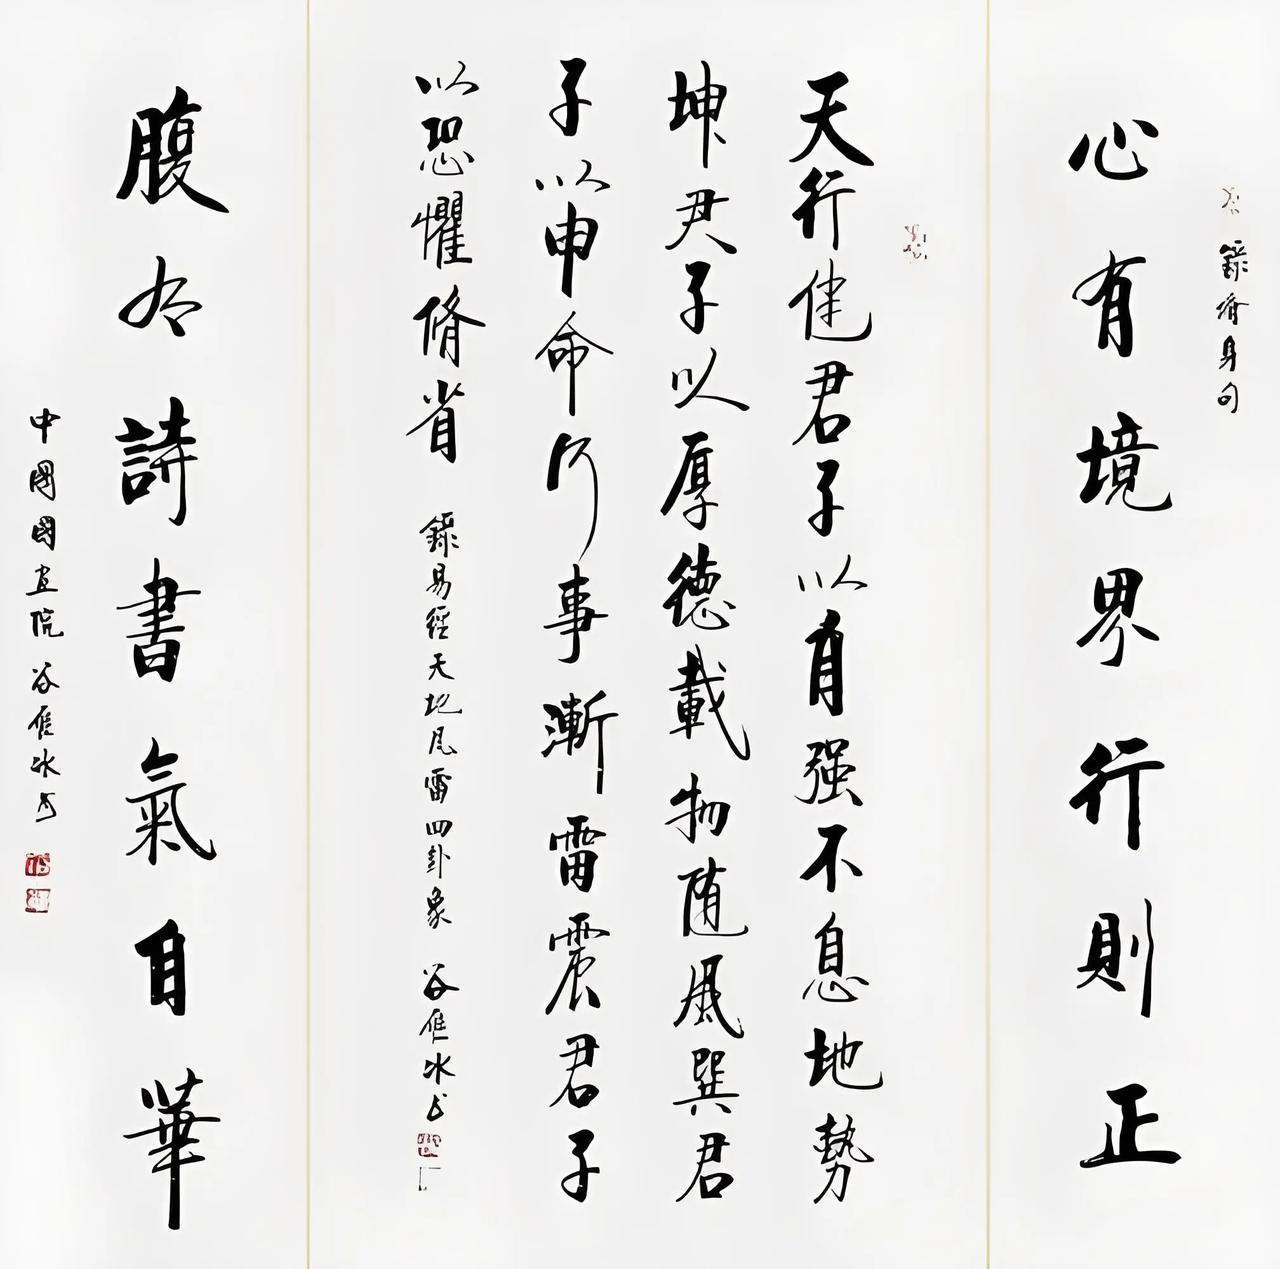 錄 身句
心有境界行則正
天行健君子以自强不息地勢
坤君子以厚德載物随風巽君
子以申命行事漸雷震君子
以恐懼脩省 錄易經天地風雷四卦象 谷雁冰書
腹有詩書氣自華
中國國畫院 谷雁冰書